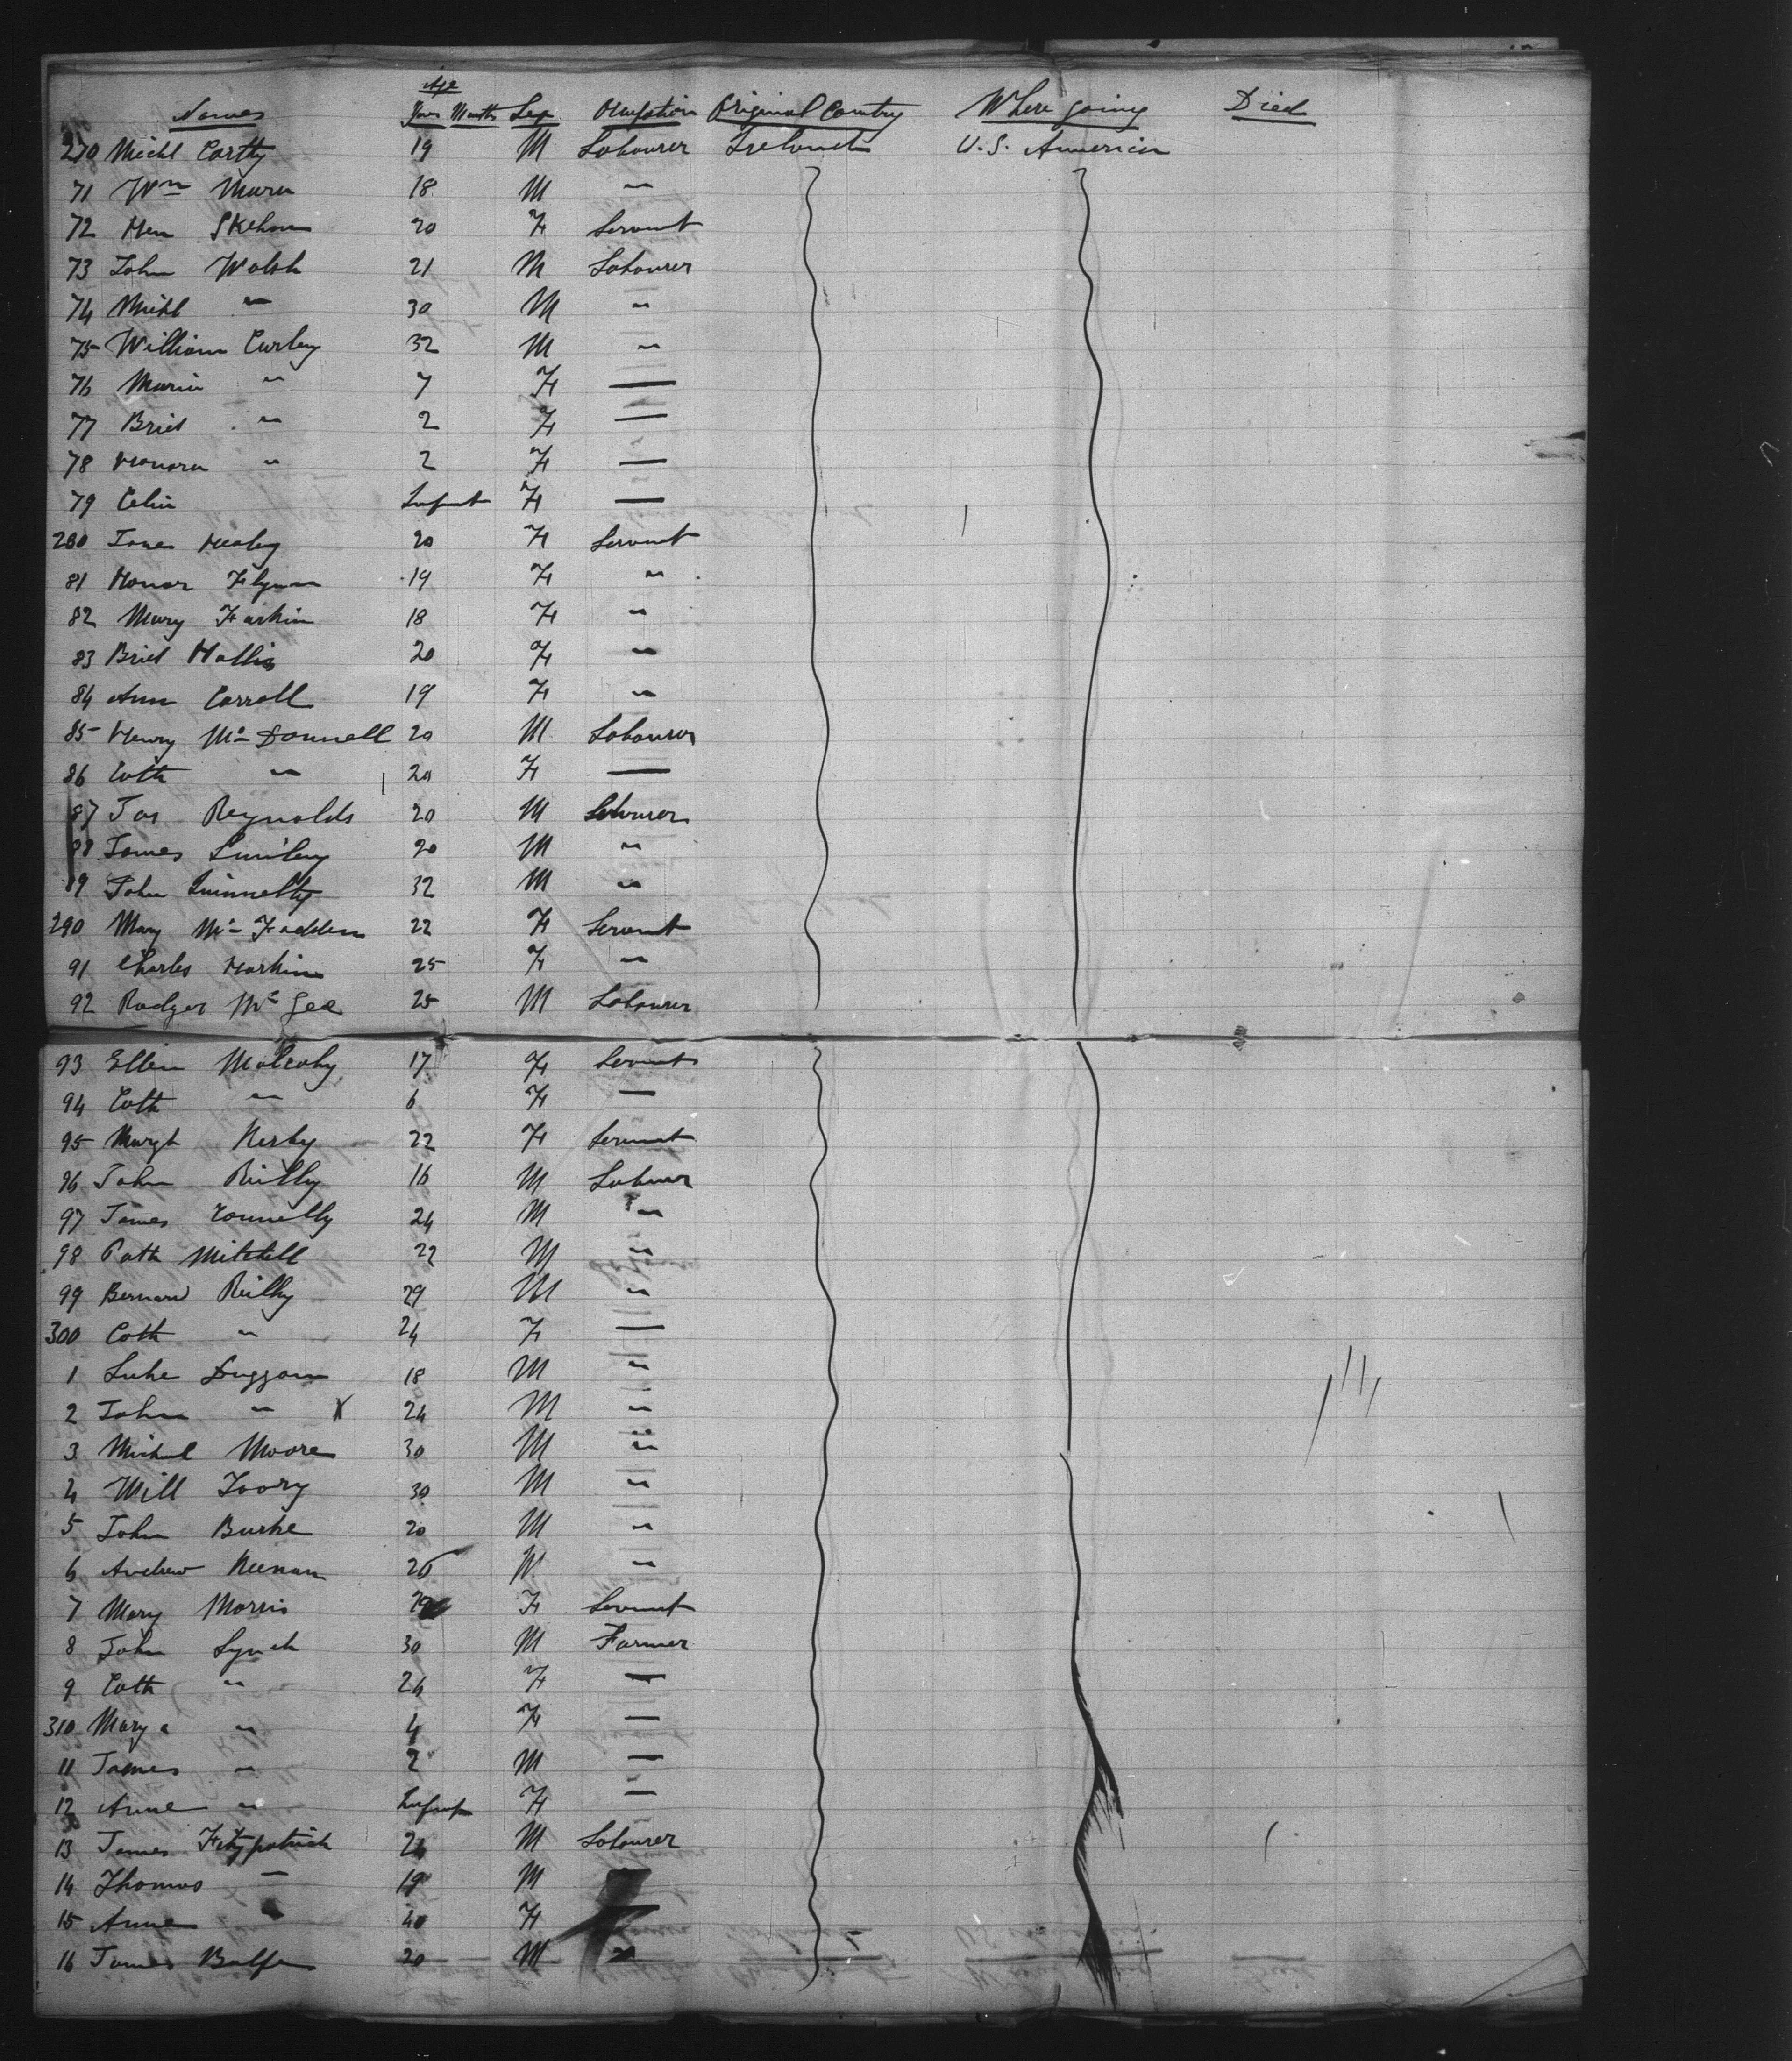 Age
Names Years Months Sex Occupation Original Country Where going Died
270 Michl Carthy 19 M Labourer Ireland U.S. America
71 Wm Mara 18 M "
72 Skehan 20 F Servant
73 John Walsh 21 M Labourer
74 Michl " 30 M "
75 William Curley 32 M "
76 Maria " 7 F —
77 Brid " 2 F —
78 Honora " 2 F —
79 Celia Infant F —
280 Jane Healey 20 F Servant
81 Honor Flynn 19 F "
82 Mary Farkin 18 F "
83 Brid Hallis 20 F "
84 Ann Carroll 19 F "
85 Henry Mc Donnell 20 M Labourer
86 Cath " 20 F —
87 Jas Reynolds 20 M Labourer
88 James 20 M "
89 John Quinnelty 32 M "
290 Mary Mc Fadden 22 F Servant
91 Charles Harkin 25 F "
92 Rodger Mc Gee 25 M Labourer
93 Ellen Mulcahy 17 F Servant
94 Cath " 6 F —
95 Margt Kerby 22 F Servant
96 John Reilly 16 M Labourer
97 James Connelly 24 M "
98 Path Mitchell 22 M "
99 Bernard Reilly 29 M "
300 Cath " 24 F —
1 Luke Duggan 18 M "
2 John " X 24 M "
3 Michael Moore 30 M "
4 Will 30 M "
5 John Burke 20 M "
6 Andrew Keenan M "
7 Mary Morris F Servant
8 John Lynch 30 M Farmer
9 Cath " 24 F —
310 Mary a " 4 F —
11 James " 2 M —
12 Anne " Infant F —
13 James Fitzpatrick 24 M Labourer
14 Thomas — 19 M
15 Anne 40 F
16 James Balfe 20 M "